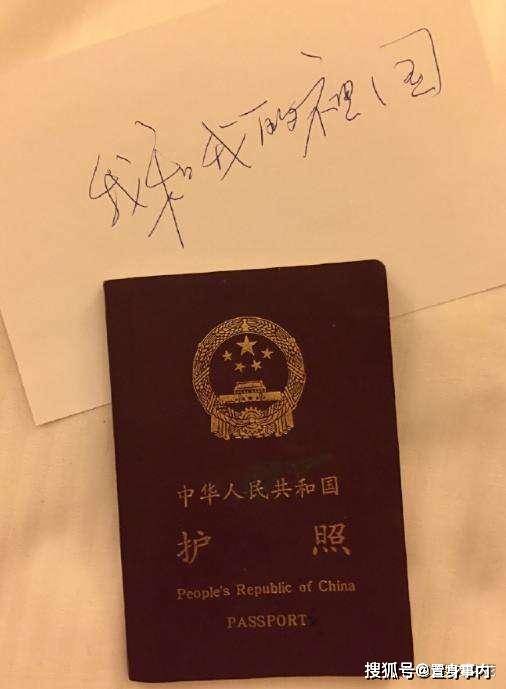 我和我的祖国
中华人民共和国
护照
People's Republic of China
PASSPORT
搜狐号@置身事内